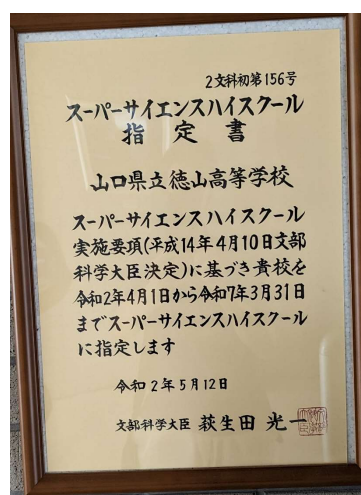 2文科初第156号
スーパーサイエンスハイスクール
指定書
山口県立徳山高等学校
スーパーサイエンスハイスクール
実施要項(平成14年4月10日文部
科学大臣決定)に基づき貴校を
令和2年4月1日から令和7年3月31日
までスーパーサイエンスハイスクール
に指定します
令和2年5月12日
文部科学大臣 萩生田光一